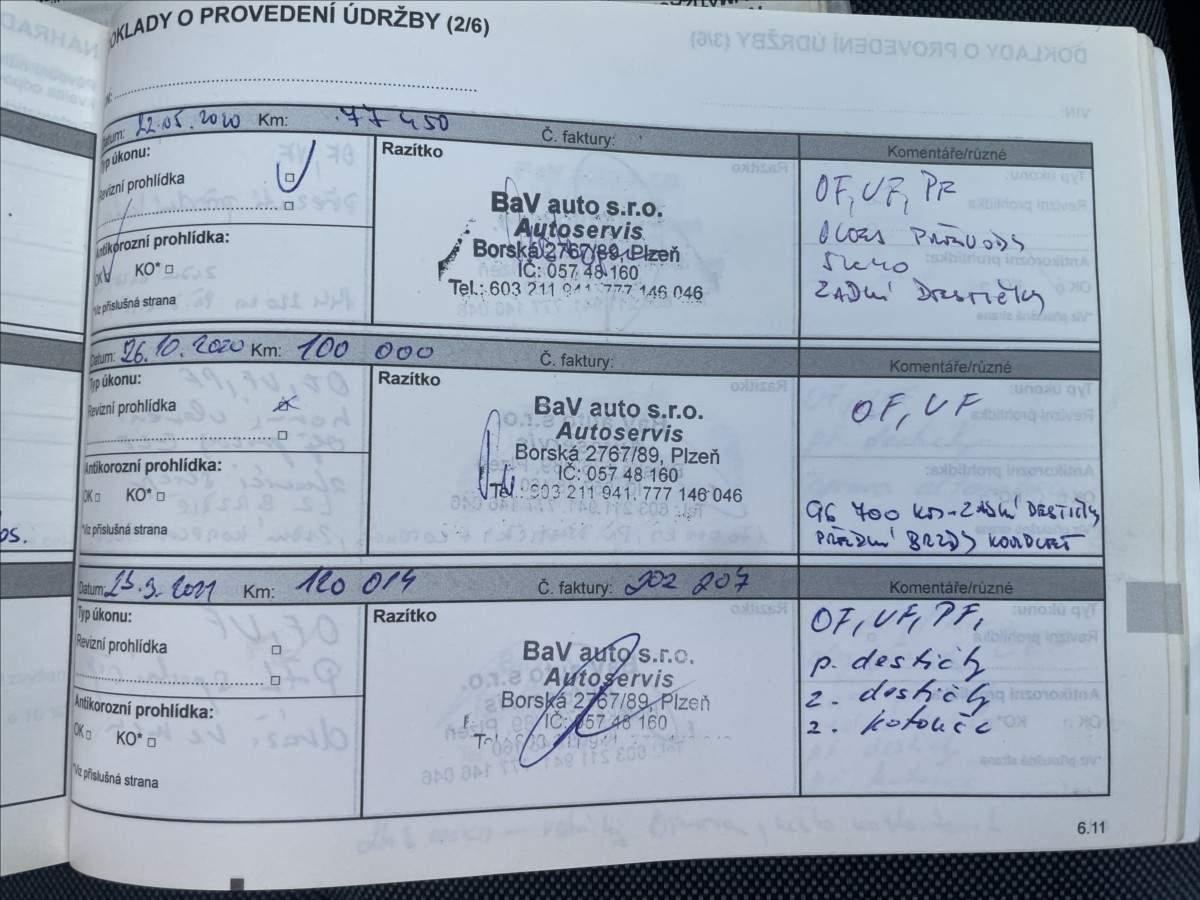 DOKLADY O PROVEDENÍ ÚDRŽBY (2/6)
Datum: 22.05.2020 Km: 77 450 Č. faktury:
Typ úkonu:
Revizní prohlídka
Antikorozní prohlídka:
OK KO*
*Viz příslušná strana
Razítko
BaV auto s.r.o.
Autoservis
Borská 2767/89, Plzeň
IČ: 057 48 160
Tel.: 603 211 941, 777 146 046
Komentáře/různé
OF, VF, PF
OLEJ PŘEVODY
ZADNÍ DESTIČKY
Datum: 26.10.2020 Km: 100 000 Č. faktury:
Typ úkonu:
Revizní prohlídka
Antikorozní prohlídka:
OK KO*
*Viz příslušná strana
Razítko
BaV auto s.r.o.
Autoservis
Borská 2767/89, Plzeň
IČ: 057 48 160
Tel.: 603 211 941, 777 146 046
Komentáře/různé
OF, VF
96 700 KM-ZADNÍ DESTIČKY
PŘEDNÍ BRZDY KOMPLET
Datum: 23.3.2021 Km: 120 014 Č. faktury: 202 207
Typ úkonu:
Revizní prohlídka
Antikorozní prohlídka:
OK KO*
*Viz příslušná strana
Razítko
BaV auto s.r.o.
Autoservis
Borská 2767/89, Plzeň
IČ: 057 48 160
Komentáře/různé
OF, VF, PF,
p. destičky
z. destičky
z. kotouče
6.11